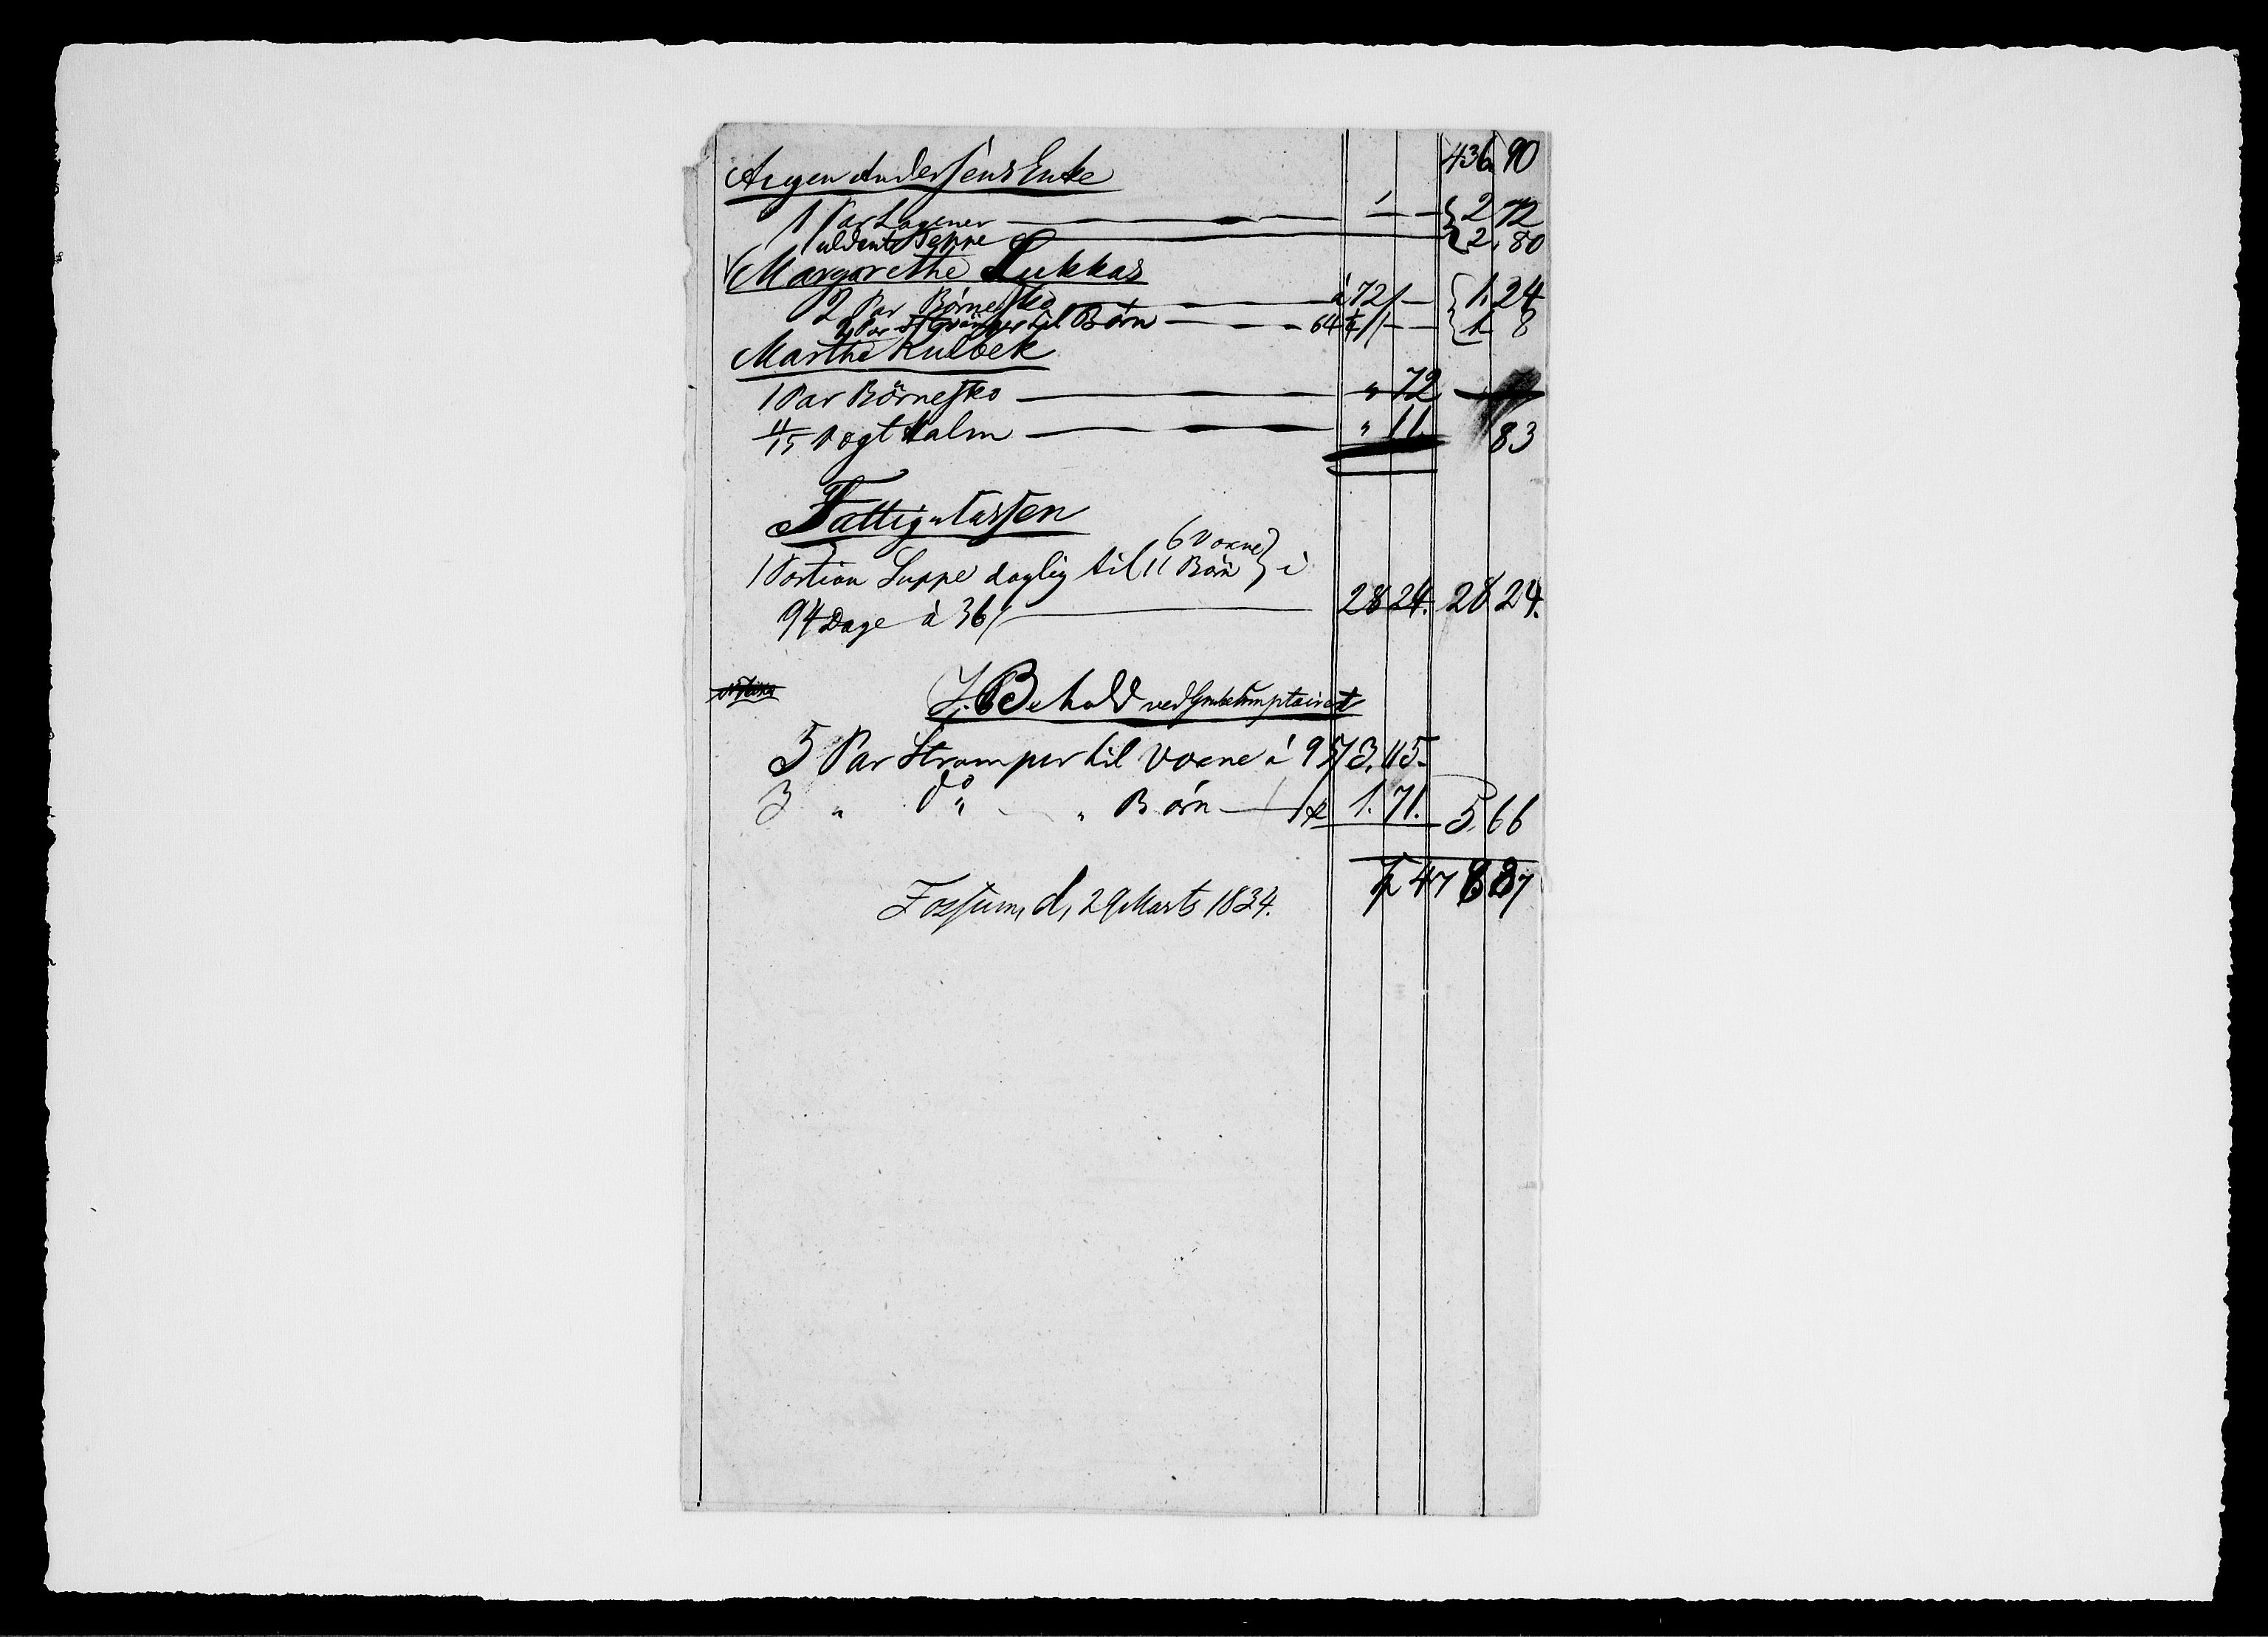 436. 90
Aagen Andersens Enke
1 Par Lagener — 2 72
1 uldent Teppe — 2. 80
Margarethe Lukkas
2 Par Børnesko — à 72/ — 1. 24
2 Par Strömper til Börn — 64 — 1 8
Marthe Kulbek
1 Par Börnesko — " 72
11/15 Vogt Halm — " 11. 83
Fattigkassen
1 Portion Suppe daglig til 6 Voxne 11 Börn i
94 Dage à 36/ — 28 24. 28 24.
I Behold ved Grubekomptoiret
5 Par Strømper til Voxne à 95/ 3. 115.
3 " do " " Børn — 1. 71. 5. 66
478 87
Fossum, d. 29 Marts 1834.